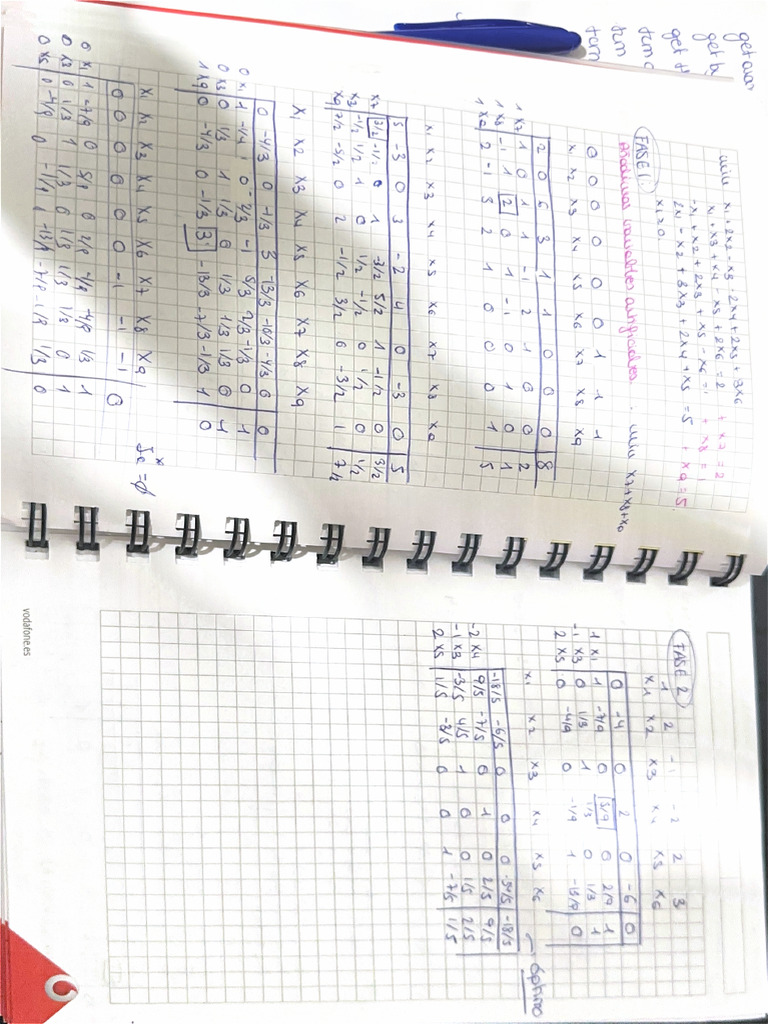 min x1 + 2x2 - x3 - 2x4 + 2x5 + 3x6
x1 + x3 + x4 - x5 + 2x6 = 2 + x7 = 2
-x1 + x2 + 2x3 + x5 - x6 = 1 + x8 = 1
2x1 - x2 + 3x3 + 2x4 + x5 = 5 + x9 = 5
xi ≥ 0
FASE 1: Añadimos variables artificiales. min x7 + x8 + x9
0 0 0 0 0 0 1 1 1
x1 x2 x3 x4 x5 x6 x7 x8 x9
2 0 6 3 1 1 0 0 0 8
1 x7 1 0 1 1 -1 2 1 0 0 2
1 x8 -1 1 2 0 1 -1 0 1 0 1
1 x9 2 -1 3 2 1 0 0 0 1 5
x1 x2 x3 x4 x5 x6 x7 x8 x9
5 -3 0 3 -2 4 0 -3 0 5
x7 3/2 -1/2 0 1 -3/2 5/2 1 -1/2 0 3/2
x3 -1/2 1/2 1 0 1/2 -1/2 0 1/2 0 1/2
x9 7/2 -5/2 0 2 -1/2 3/2 0 -3/2 1 7/2
x1 x2 x3 x4 x5 x6 x7 x8 x9
0 -4/3 0 -1/3 3 -13/3 -10/3 -4/3 0 0
0 x1 1 -1/3 0 2/3 -1 5/3 2/3 -1/3 0 1
0 x3 0 1/3 1 1/3 0 1/3 1/3 1/3 0 1
1 x9 0 -4/3 0 -1/3 3 -13/3 -7/3 -1/3 1 0
x1 x2 x3 x4 x5 x6 x7 x8 x9
0 0 0 0 0 0 -1 -1 -1 0
0 x1 1 -7/9 0 5/9 0 2/9 -1/9 -4/9 1/3 1
0 x3 0 1/3 1 1/3 0 1/3 1/3 1/3 0 1
0 x5 0 -4/9 0 -1/9 1 -13/9 -7/9 -1/9 1/3 0
FASE 2
1 2 -1 -2 2 3
x1 x2 x3 x4 x5 x6
0 -4 0 2 0 -6 0
1 x1 1 -7/9 0 5/9 0 2/9 1
-1 x3 0 1/3 1 1/3 0 1/3 1
2 x5 0 -4/9 0 -1/9 1 -13/9 0
x1 x2 x3 x4 x5 x6
-18/5 -6/5 0 0 0 -34/5 -18/5 → óptimo
-2 x4 9/5 -7/5 0 1 0 2/5 9/5
-1 x3 -3/5 4/5 1 0 0 1/5 2/5
2 x5 1/5 -3/5 0 0 1 -7/5 1/5
vodafone.es